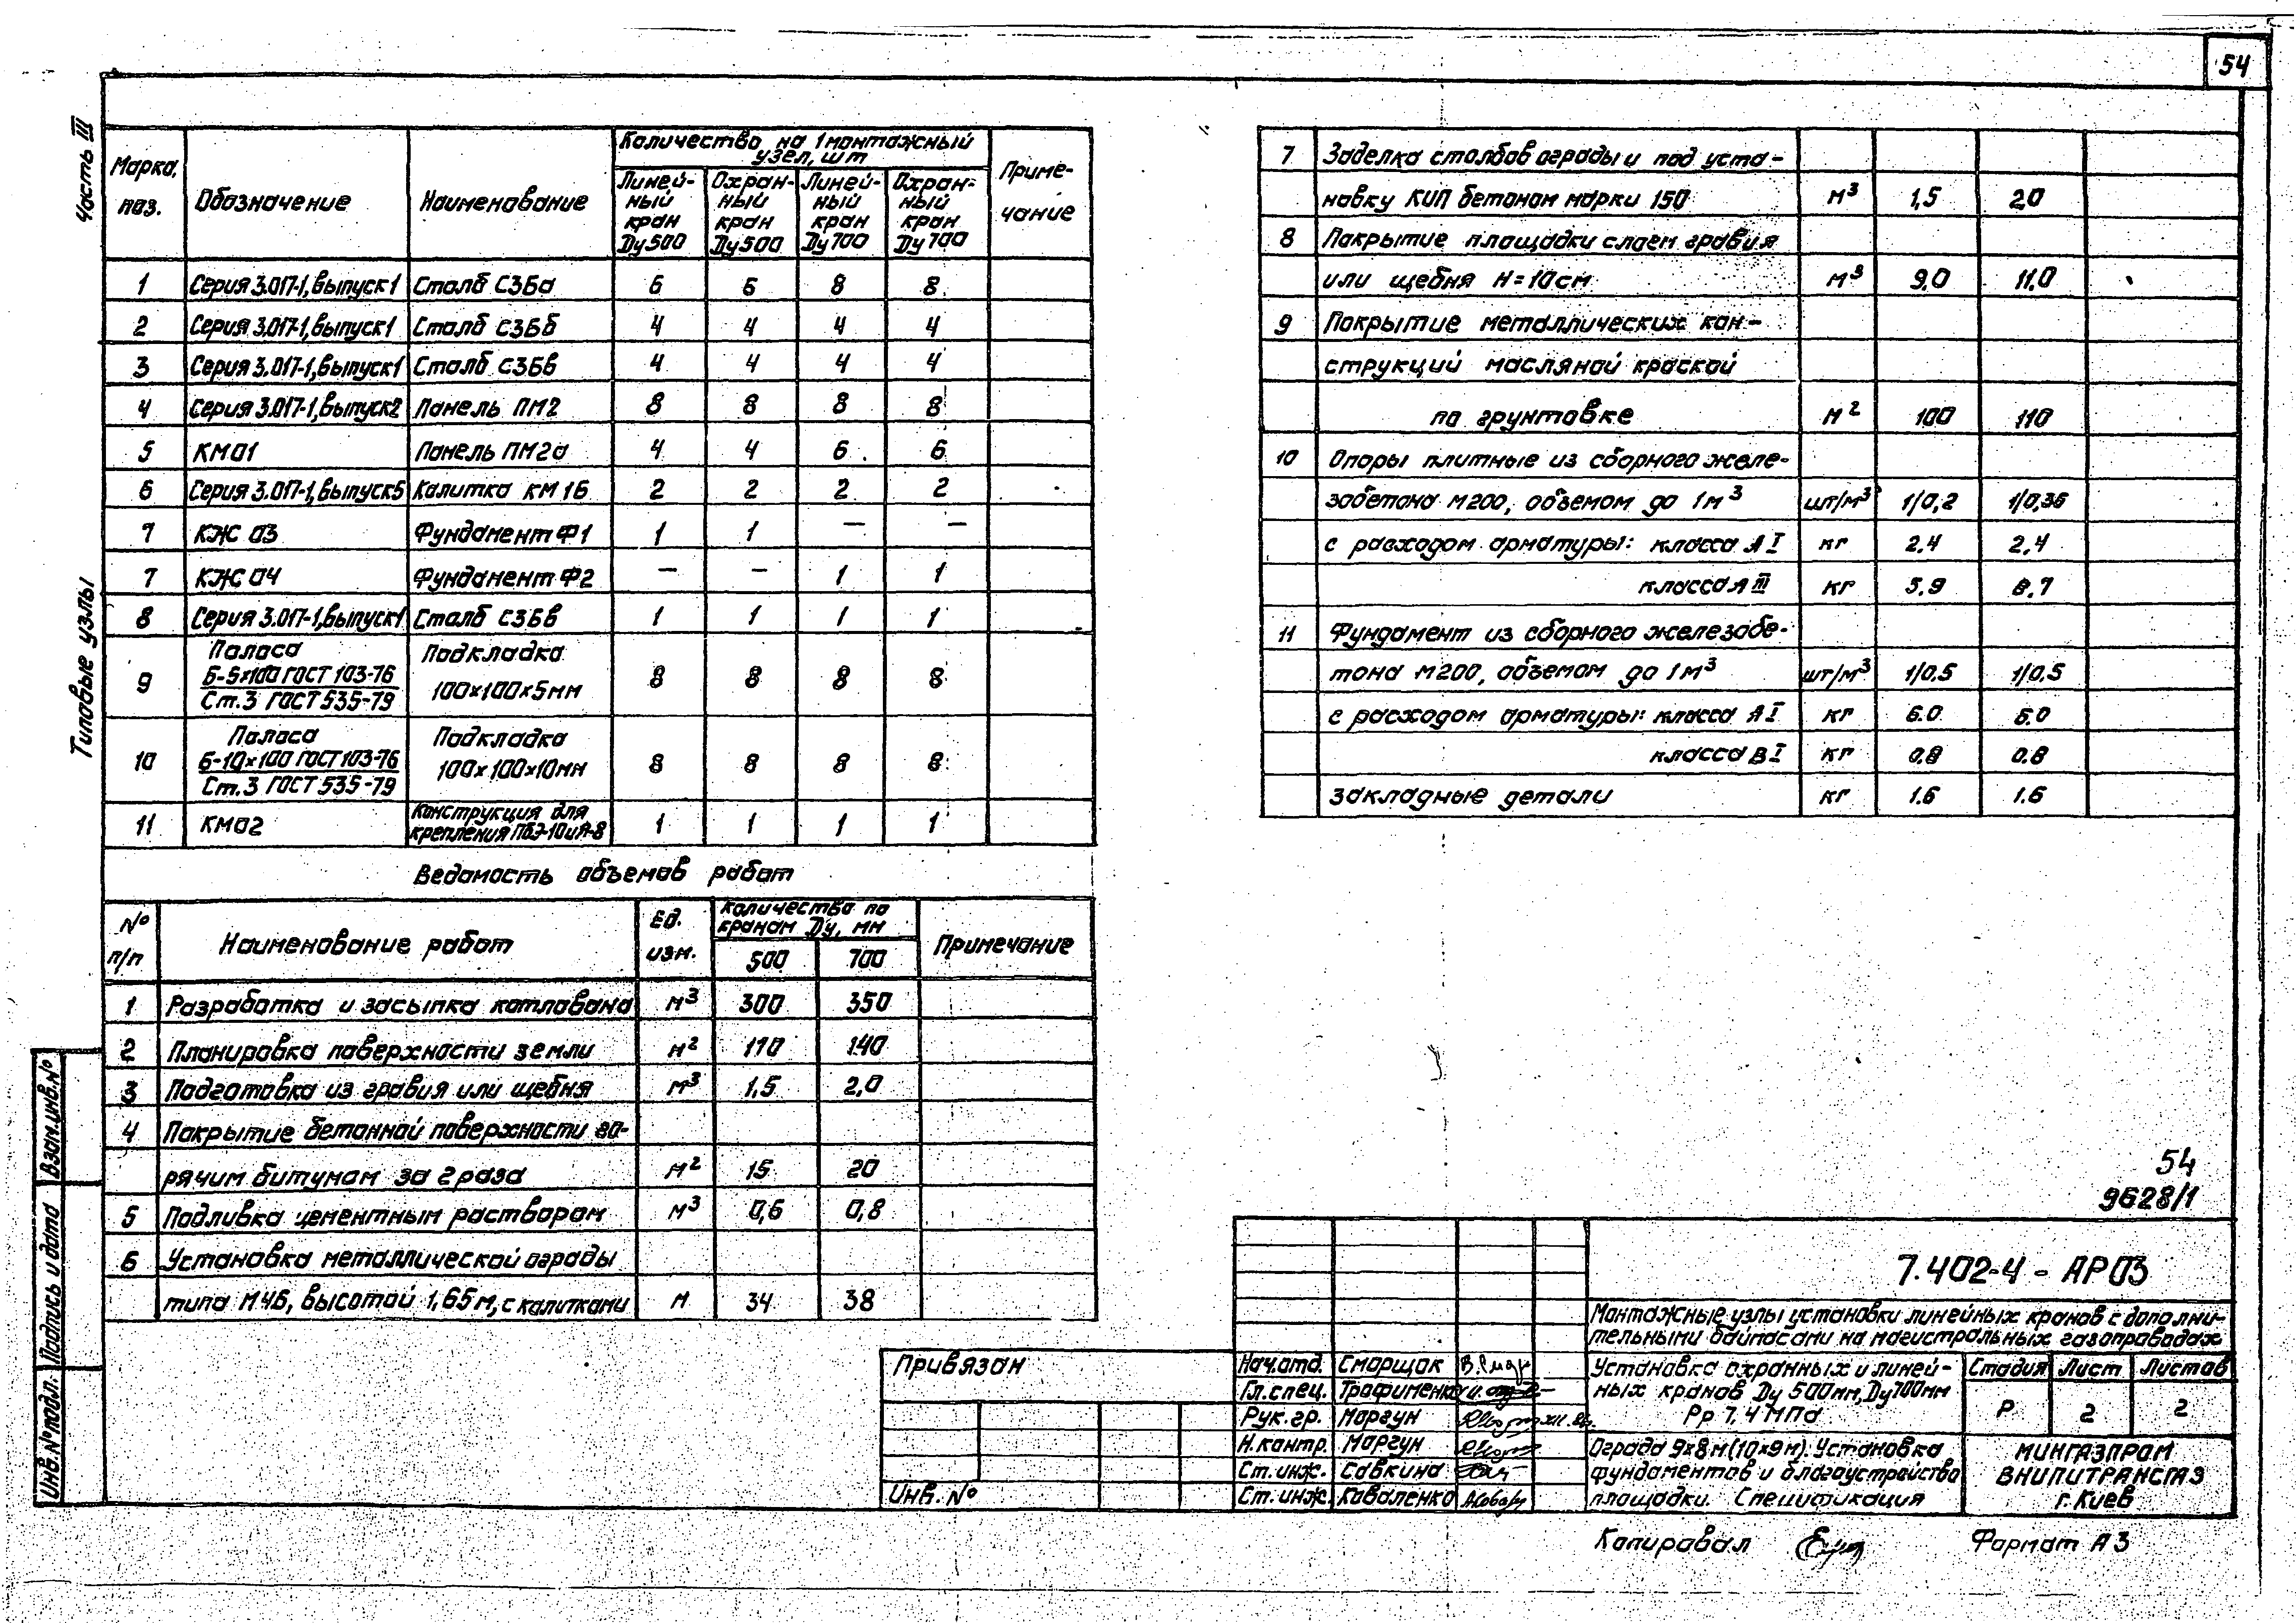 54
Часть III
Типовые узлы
Марка, поз. | Обозначение | Наименование | Количество на 1 монтажный узел, шт | Примечание
Линейный кран Ду500 | Охранный кран Ду500 | Линейный кран Ду700 | Охранный кран Ду700
1 | Серия 3.017-1, выпуск1 | Столб С3Ба | 6 | 6 | 8 | 8
2 | Серия 3.017-1, выпуск1 | Столб С3Бб | 4 | 4 | 4 | 4
3 | Серия 3.017-1, выпуск1 | Столб С3Бв | 4 | 4 | 4 | 4
4 | Серия 3.017-1, выпуск2 | Панель ПМ2 | 8 | 8 | 8 | 8
5 | КМ01 | Панель ПМ2а | 4 | 4 | 6 | 6
6 | Серия 3.017-1, выпуск5 | Калитка КМ1Б | 2 | 2 | 2 | 2
7 | КЖ 03 | Фундамент Ф1 | 1 | 1 | — | —
7 | КЖ 04 | Фундамент Ф2 | — | — | 1 | 1
8 | Серия 3.017-1, выпуск1 | Столб С3Бв | 1 | 1 | 1 | 1
9 | Полоса Б-5×100 ГОСТ 103-76 Ст.3 ГОСТ 535-79 | Подкладка 100×100×5мм | 8 | 8 | 8 | 8
10 | Полоса Б-10×100 ГОСТ 103-76 Ст.3 ГОСТ 535-79 | Подкладка 100×100×10мм | 8 | 8 | 8 | 8
11 | КМ02 | Конструкция для крепления ПВЭ-10 и Я-8 | 1 | 1 | 1 | 1
Ведомость объемов работ
№ п/п | Наименование работ | Ед. изм. | Количество по кранам Ду, мм | Примечание
500 | 700
1 | Разработка и засыпка котлована | м³ | 300 | 350
2 | Планировка поверхности земли | м² | 110 | 140
3 | Подготовка из гравия или щебня | м³ | 1,5 | 2,0
4 | Покрытие бетонной поверхности го-
рячим битумом за 2 раза | м² | 15 | 20
5 | Подливка цементным раствором | м³ | 0,6 | 0,8
6 | Установка металлической ограды
типа М4Б, высотой 1,65м, с калитками | м | 34 | 38
7 | Заделка столбов ограды и под уста-
новку КИП бетоном марки 150 | м³ | 1,5 | 2,0
8 | Покрытие площадки слоем гравия
или щебня Н=10см | м³ | 9.0 | 11.0
9 | Покрытие металлических кон-
струкций масляной краской
по грунтовке | м² | 100 | 110
10 | Опоры плитные из сборного желе-
зобетона М200, объемом до 1м³ | шт/м³ | 1/0,2 | 1/0,36
с расходом арматуры: класса А I | кг | 2.4 | 2,4
класса А III | кг | 5.9 | 8.7
11 | Фундамент из сборного железобе-
тона М200, объемом до 1м³ | шт/м³ | 1/0.5 | 1/0.5
с расходом арматуры: класса А I | кг | 6.0 | 6.0
класса В I | кг | 0.8 | 0.8
закладные детали | кг | 1.6 | 1.6
54
9628/1
7.402-4 - АР03
Монтажные узлы установки линейных кранов с дополни-
тельными байпасами на магистральных газопроводах
Нач.отд. Сморщок
Гл.спец. Трофименко
Рук.гр. Моргун XII.86г.
Н.контр. Моргун
Ст.инж. Савкина
Ст.инж. Коваленко
Установка охранных и линей-
ных кранов Ду 500мм, Ду700мм
Рр 7,4 МПа
Стадия | Лист | Листов
Р | 2 | 2
Ограда 9×8м (10×9м). Установка
фундаментов и благоустройство
площадки. Спецификация
МИНГАЗПРОМ
ВНИПИТРАНСГАЗ
г. Киев
Привязан
Инв. №
Взам.инв.№
Подпись и дата
Инв.№подл.
Копировал
Формат А3